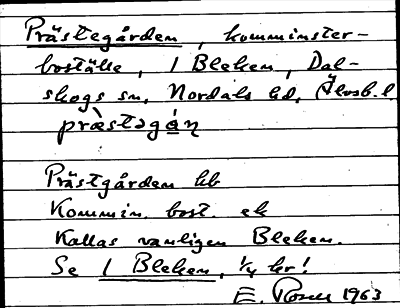 Prästegården, komminster-
boställe, 1 Bleken, Dal-
skogs sn, Nordals hd, Älvsb. l.
præ̀stəgá̱ɳ
Prästgården hb
Kommin. bost. ek
Kallas vanligen Bleken.
Se 1 Bleken, 1/4 kr!
E. 1963